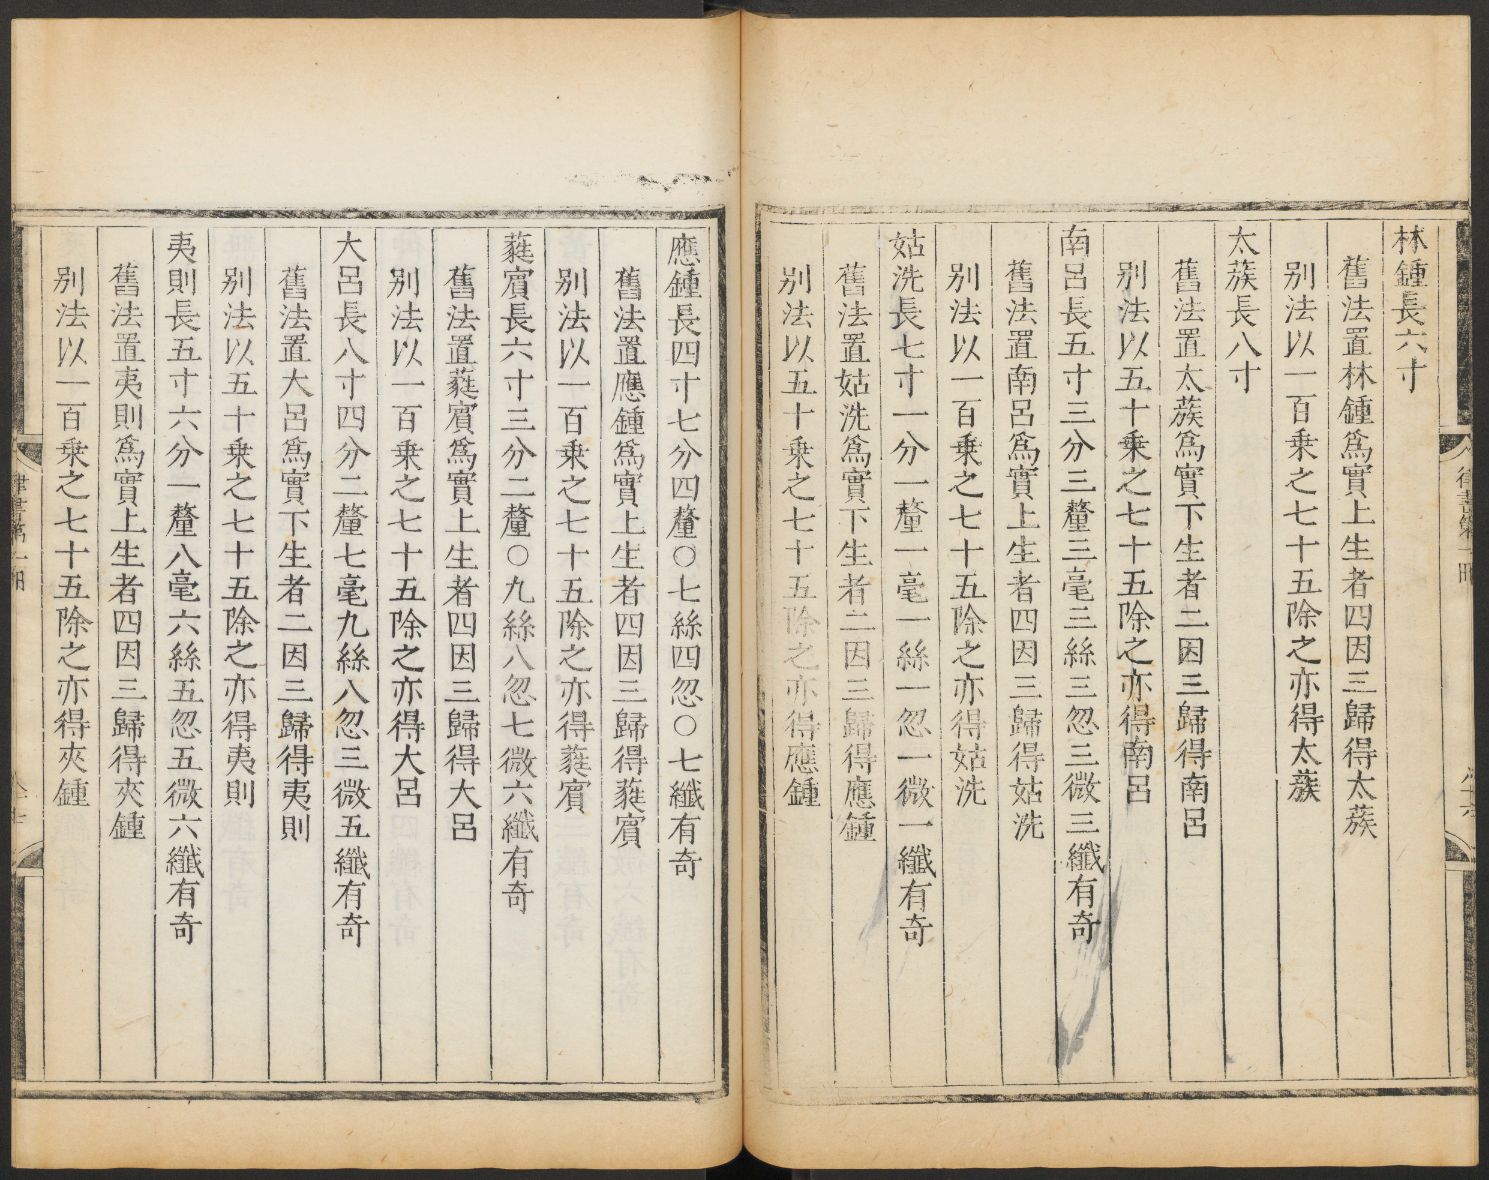 林鍾長六寸
舊法置林鍾爲實上生者四因三歸得太蔟
别法以一百乗之七十五除之亦得太蔟
太蔟長八寸
舊法置太蔟爲實下生者二因三歸得南呂
别法以五十乗之七十五除之亦得南呂
南呂長五寸三分三釐三毫三絲三忽三微三纖有奇
舊法置南呂爲實上生者四因三歸得姑洗
别法以一百乗之七十五除之亦得姑洗
姑洗長七寸一分一釐一毫一絲一忽一微一纖有奇
舊法置姑洗爲實下生者二因三歸得應鍾
别法以五十乗之七十五除之亦得應鍾
應鍾長四寸七分四釐〇七絲四忽〇七纖有奇
舊法置應鍾爲實上生者四因三歸得蕤賓
别法以一百乗之七十五除之亦得蕤賓
蕤賓長六寸三分二釐〇九絲八忽七微六纖有奇
舊法置蕤賓爲實上生者四因三歸得大呂
别法以一百乗之七十五除之亦得大呂
大呂長八寸四分二釐七毫九絲八忽三微五纖有奇
舊法置大呂爲實下生者二因三歸得夷則
别法以五十乗之七十五除之亦得夷則
夷則長五寸六分一釐八毫六絲五忽五微六纖有奇
舊法置夷則爲實上生者四因三歸得夾鍾
别法以一百乗之七十五除之亦得夾鍾